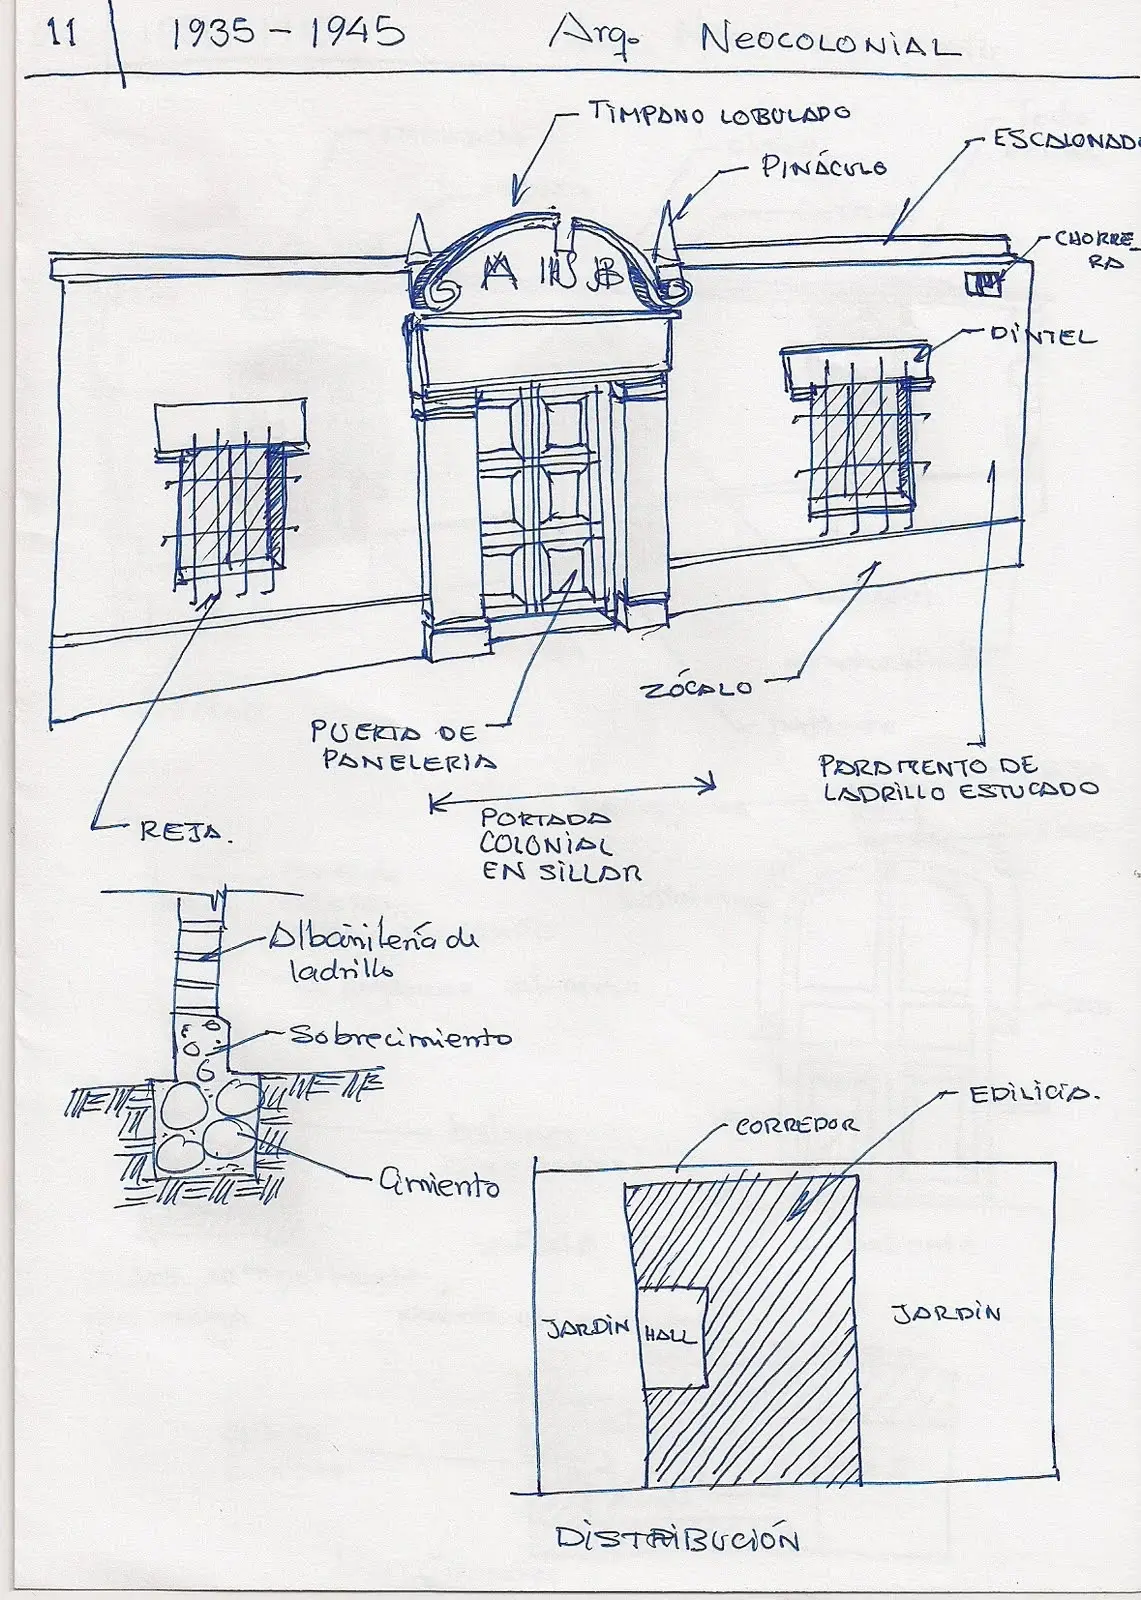 11 1935 - 1945 Arq. NEOCOLONIAL
TÍMPANO LOBULADO
ESCALONADO
PINÁCULO
CHORRE-
RA
M IHS JB
DINTEL
ZÓCALO
PUERTA DE
PANELERIA
PARAMENTO DE
LADRILLO ESTUCADO
REJA.
PORTADA
COLONIAL
EN SILLAR
Albañilería de
ladrillo
Sobrecimiento
Cimiento
EDILICIA.
CORREDOR
JARDÍN
HALL
JARDÍN
DISTRIBUCIÓN